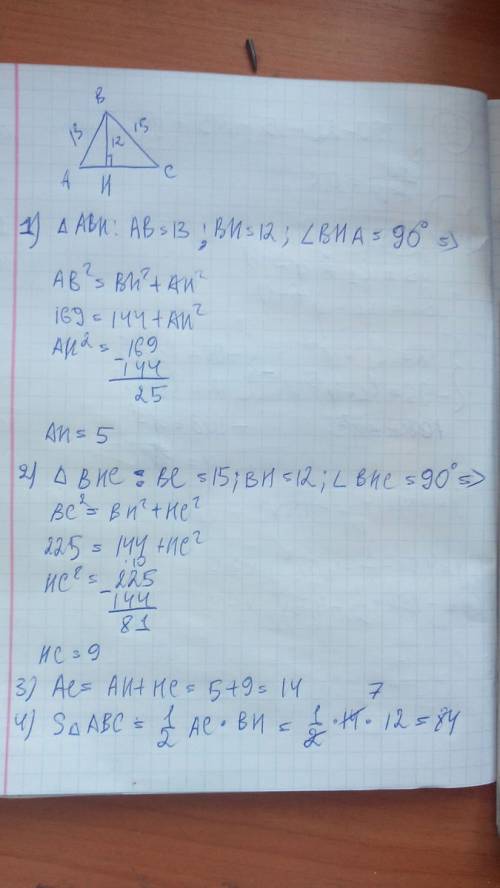 B
13 12 15
A H C
1) △ABH: AB=13; BH=12; ∠BHA=90° =>
AB²=BH²+AH²
169=144+AH²
AH²= 169
-144
25
AH=5
2) △BHC: BC=15; BH=12; ∠BHC=90° =>
BC²=BH²+HC²
225=144+HC²
HC²= 225
-144
81
HC=9
3) AC=AH+HC=5+9=14
7
4) S△ABC = 1/2 AC·BH = 1/2·14·12=84